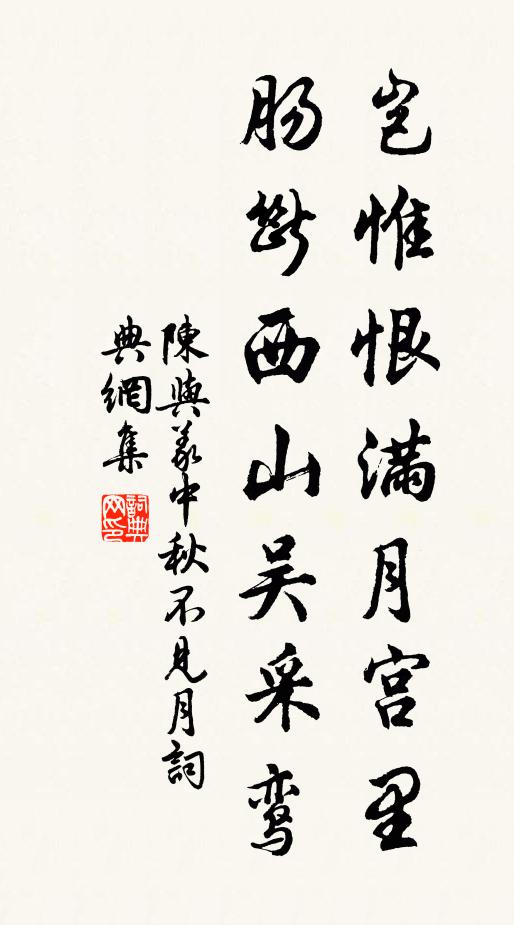 岂惟恨满月宫里
肠断西山吴采鸾
陳與義中秋不見月詞
典網集
詞典网印